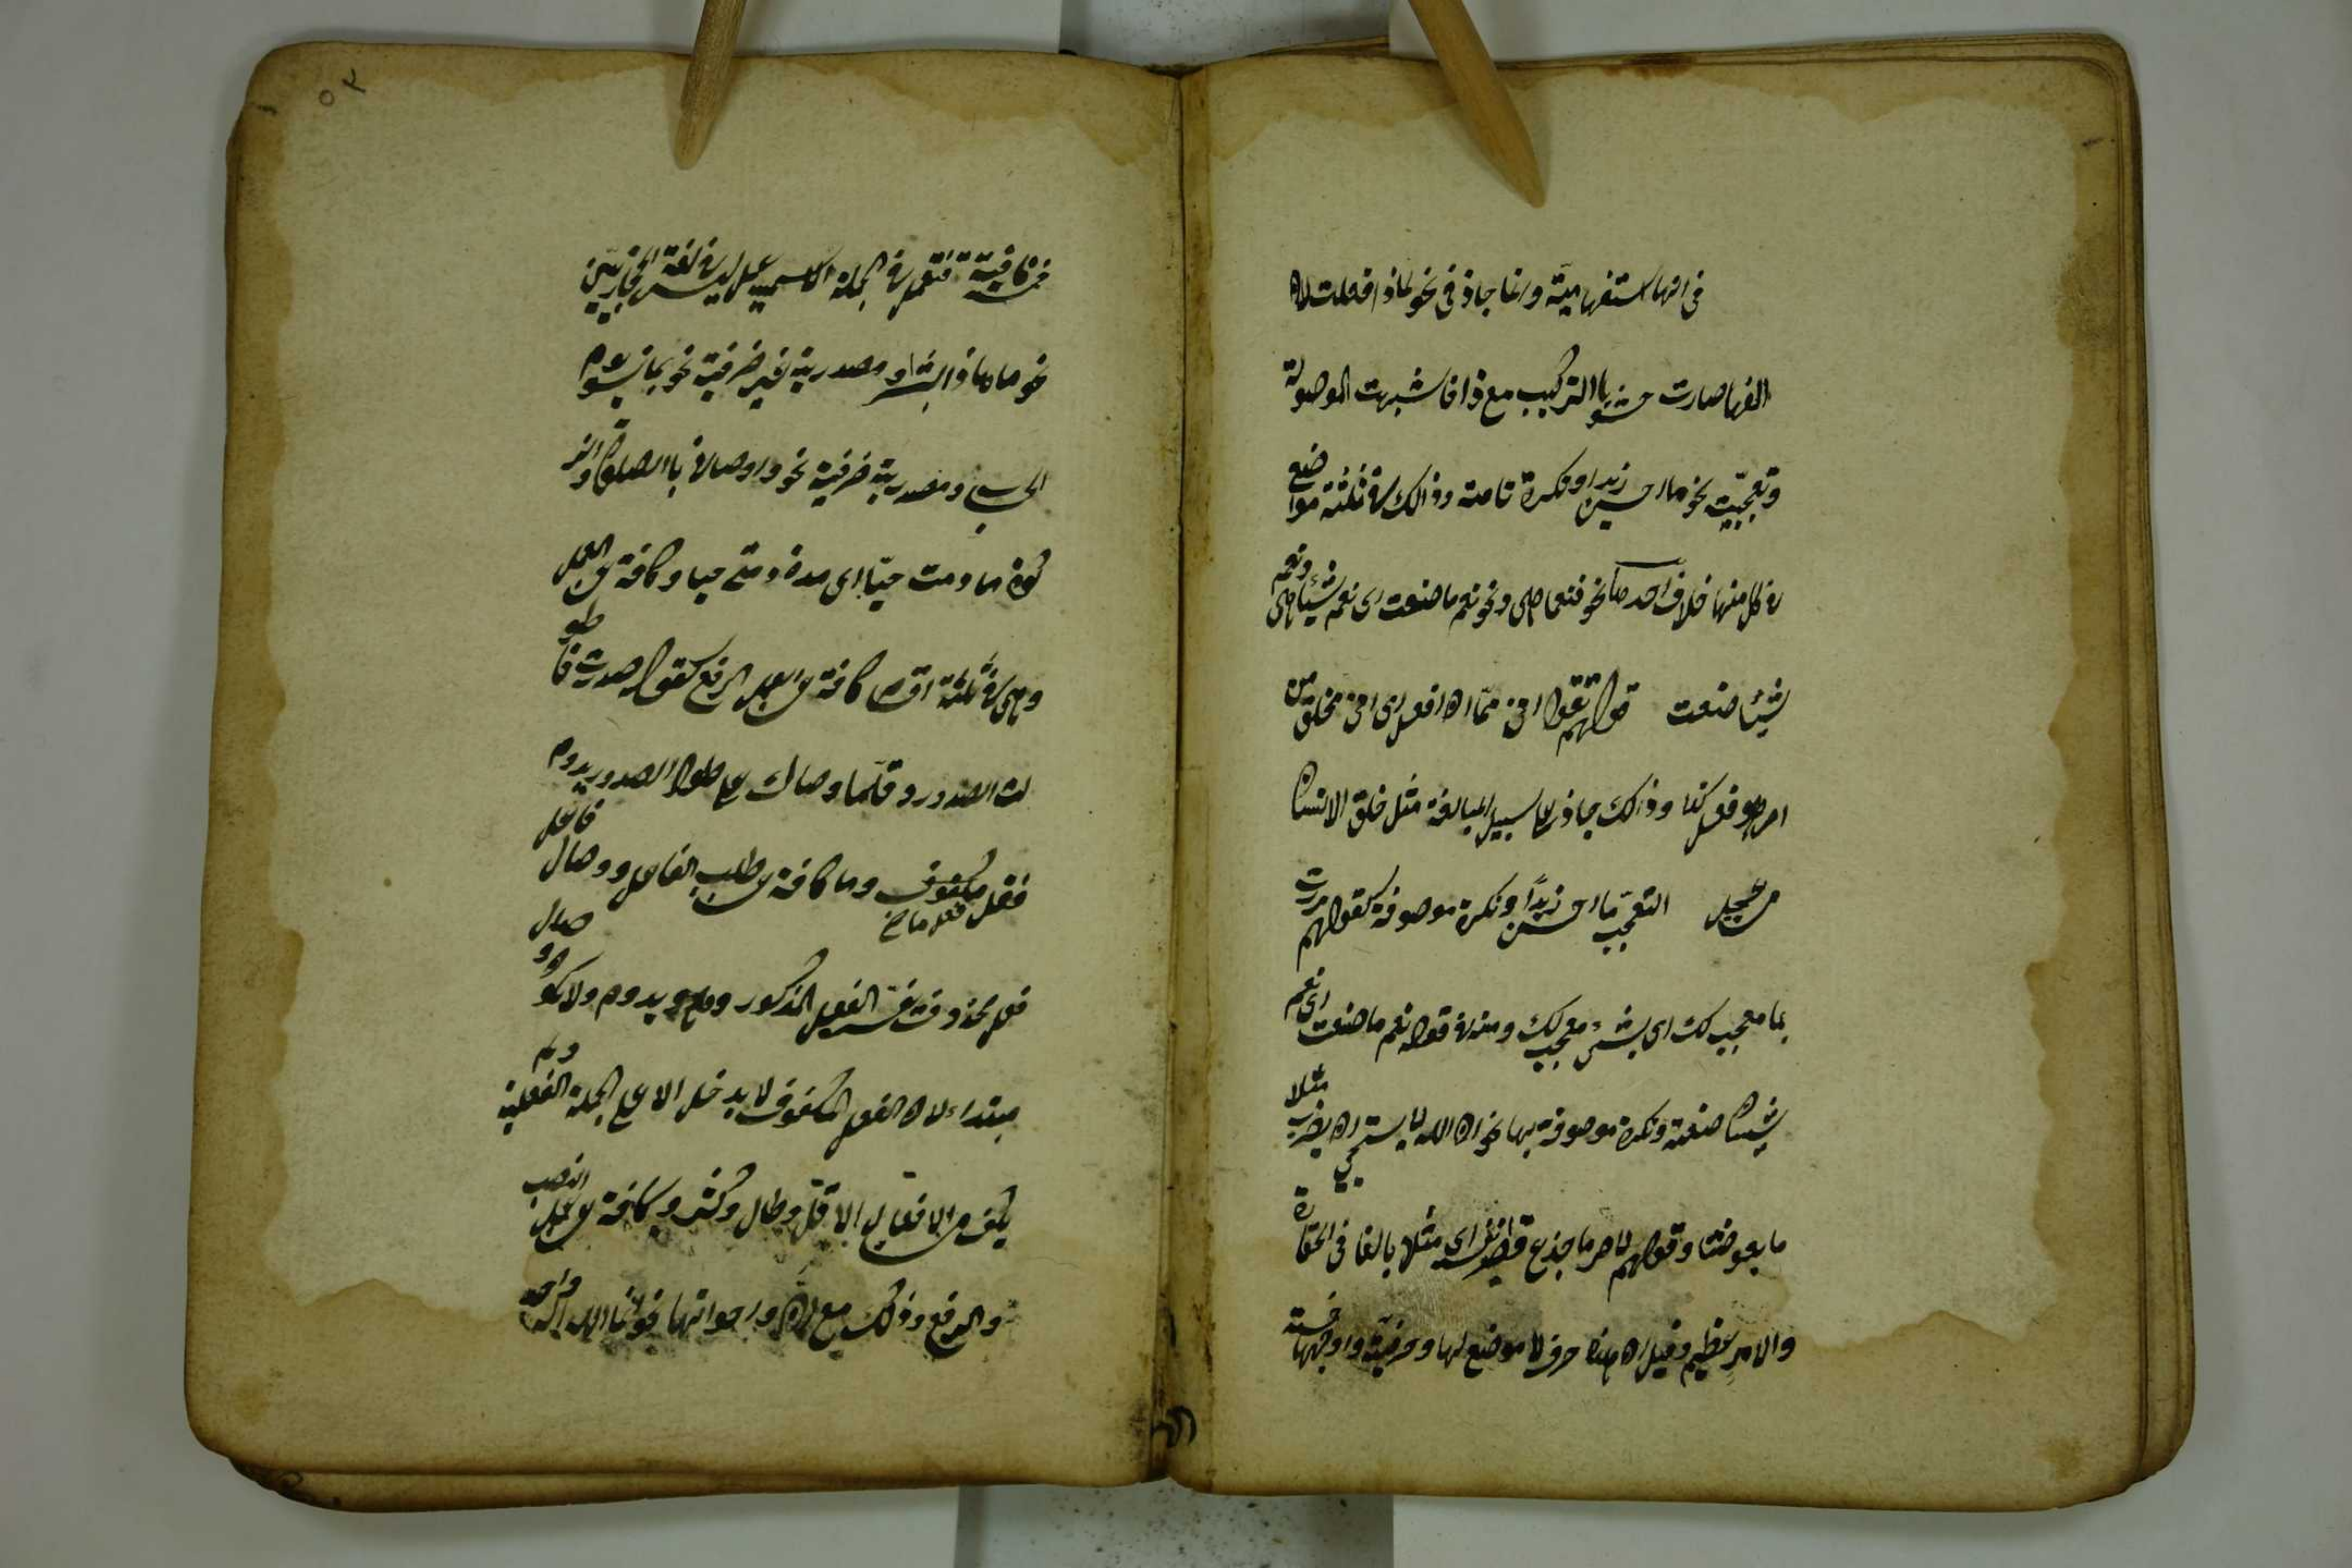 في انها استفهامية وانما جاز في نحو لماذا فعلت لان
الفها صارت حشوا بالتركيب مع ذا فاشبهت الموصولة
وتعجبية نحو ما احسن زيدا ونكرة تامة وذالك في ثلثة مواضع
في كل منها خلاف احدها نحو فنعما هي ونحو نعم ما صنعت اى نعم شيئا هي ونعم
شيئا صنعت قولهم تقول انى مما ان افعل اى انى مخلوق من
امر هو فعل كذا وذالك جاز على سبيل المبالغة مثل خلق الانسان
من عجل التعجب ما احسن زيدًا ونكرة موصوفة كقولهم مررت
بما معجب لك اى بشئ معجب لك ومنه في قول نعم ما صنعت اى نعم
شيئا صنعته ونكرة موصوفة بها نحو ان الله لا يستحيى ان يضرب مثلا
ما بعوضتا وقولهم لامر ما جذع قصير انفه اى مثلا بالغا في الحقارة
والامر عظيم وقيل ان هذه حرف لا موضع لها وحرفية واوجهها خمسة
٥٢
خمسة نافية فتعمل في الجملة الاسمية عمل ليس في لغة الحجازيين
نحو ما هاذا بشرا و مصدرية غير ظرفية نحو بما نسوا يوم
الحساب ومصدرية ظرفية نحو واوصانى باالصلوة والز
كوة ما دمت حيّا اى مدة دمتى حيا وكافة عن العمل
وهى في ثلثة اقسام كافة عن عمل الرفع كقوله صددت فا طو
لت الصدور وقلّما وصال على طول الصدور يدوم
فقل فعل ماض مكفوف وما كافة عن طلب الفاعل و وصال فاعل
فعل محذوف يفسره الفعل المذكور وهو يدوم ولا يكو وصال
مبتداء لان الفعل المكفوف لا يدخل الا على الجملة الفعلية ولم
يكف من الافعال الا قلّ وطال وكثر و كافة عن عمل النصب
والرفع وذلك مع ان واخواتها نحو انما الله اله واحد